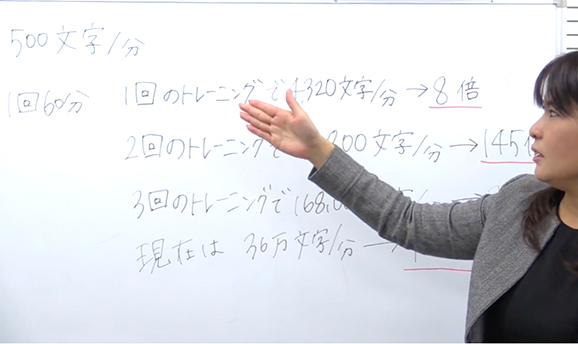 500文字/分
1回60分
1回のトレーニングで4,320文字/分→8倍
2回のトレーニングで 200文字/分→145
3回のトレーニングで168,0 /分→
現在は 36万文字/分→